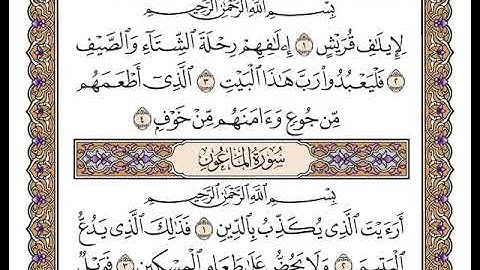 بِسْمِ اللَّهِ الرَّحْمَٰنِ الرَّحِيمِ
لِإِيلَٰفِ قُرَيْشٍ ١ إِۦلَٰفِهِمْ رِحْلَةَ الشِّتَآءِ وَالصَّيْفِ
٢ فَلْيَعْبُدُوا۟ رَبَّ هَٰذَا الْبَيْتِ ٣ الَّذِىٓ أَطْعَمَهُم
مِّن جُوعٍ وَءَامَنَهُم مِّنْ خَوْفٍۭ ٤
سُورَةُ الْمَاعُونِ
بِسْمِ اللَّهِ الرَّحْمَٰنِ الرَّحِيمِ
أَرَءَيْتَ الَّذِى يُكَذِّبُ بِالدِّينِ ١ فَذَٰلِكَ الَّذِى يَدُعُّ
الْيَتِيمَ ٢ وَلَا يَحُضُّ عَلَىٰ طَعَامِ الْمِسْكِينِ ٣ فَوَيْلٌ